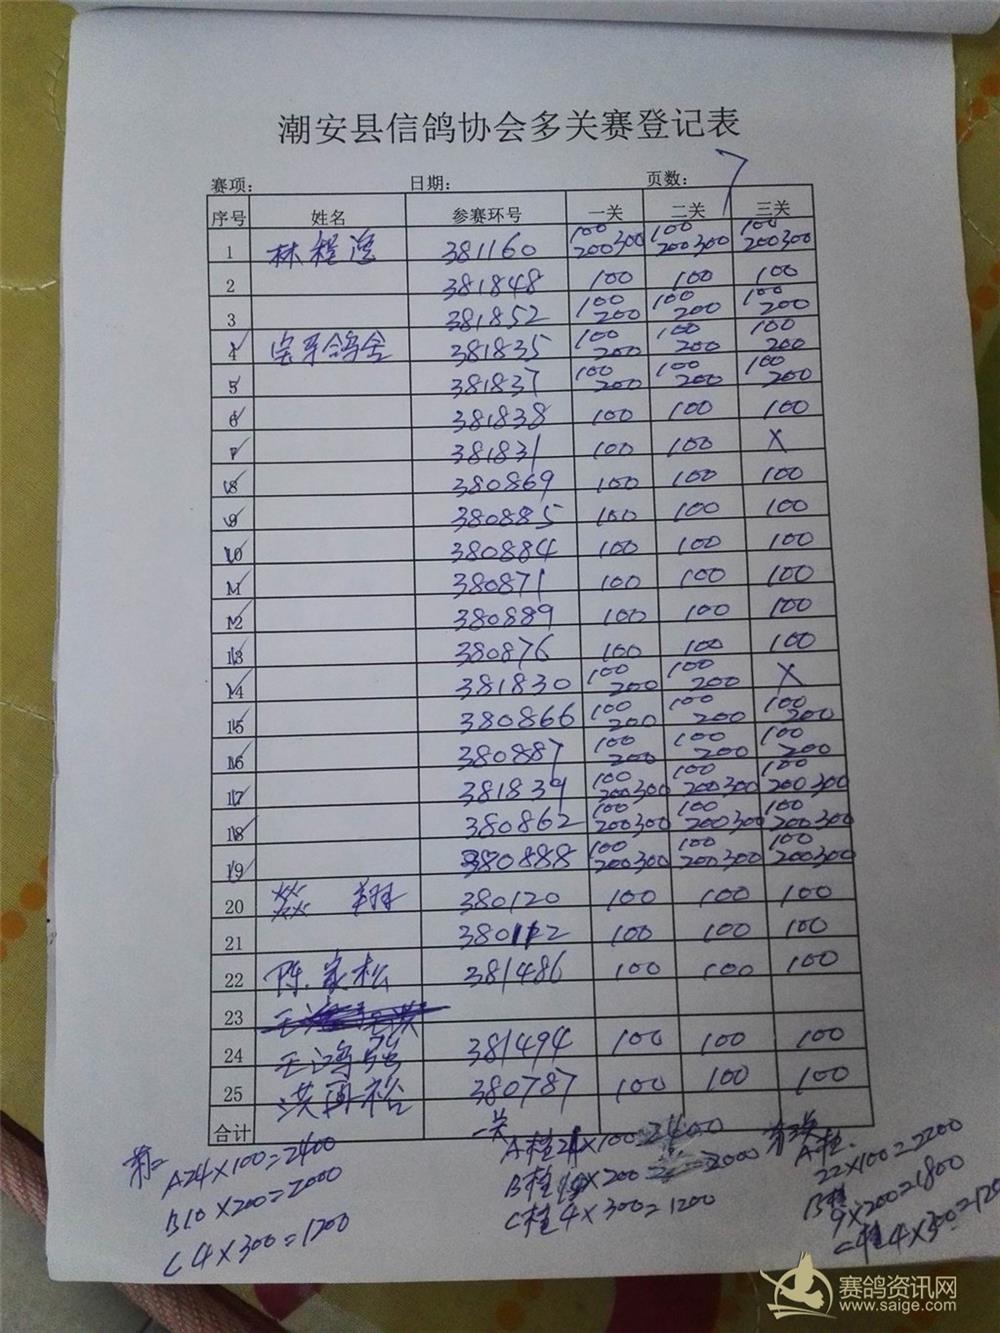 潮安县信鸽协会多关赛登记表
赛项: 日期: 页数: 7
序号 姓名 参赛环号 一关 二关 三关
1 林程 381160 100 200 300 100 200 300 100 200 300
2 381848 100 100 100
3 381852 100 200 100 200 100 200
4 宝平鸽舍 381835 100 200 100 200 100 200
5 381837 100 200 100 200 100 200
6 381838 100 100 100
7 381831 100 100 X
8 380869 100 100 100
9 380885 100 100 100
10 380884 100 100 100
11 380871 100 100 100
12 380889 100 100 100
13 380876 100 100 100
14 381830 100 200 100 200 X
15 380866 100 200 100 200 100 200
16 380887 100 200 100 200 100 200
17 381839 100 200 300 100 200 300 100 200 300
18 380862 100 200 300 100 200 300 100 200 300
19 380888 100 200 300 100 200 300 100 200 300
20 蔡翔 380120 100 100 100
21 380112 100 100 100
22 陈家松 381486 100 100 100
23
24 王鸿强 381494 100 100 100
25 洪再裕 380787 100 100 100
合计
第二
A24×100=2400
B10×200=2000
C4×300=1200
一关
A柱24×100=2400
B柱10×200=2000
C柱4×300=1200
第三关
A柱
22×100=2200
B柱
9×200=1800
C柱4×300=120
赛鸽资讯网
www.saige.com